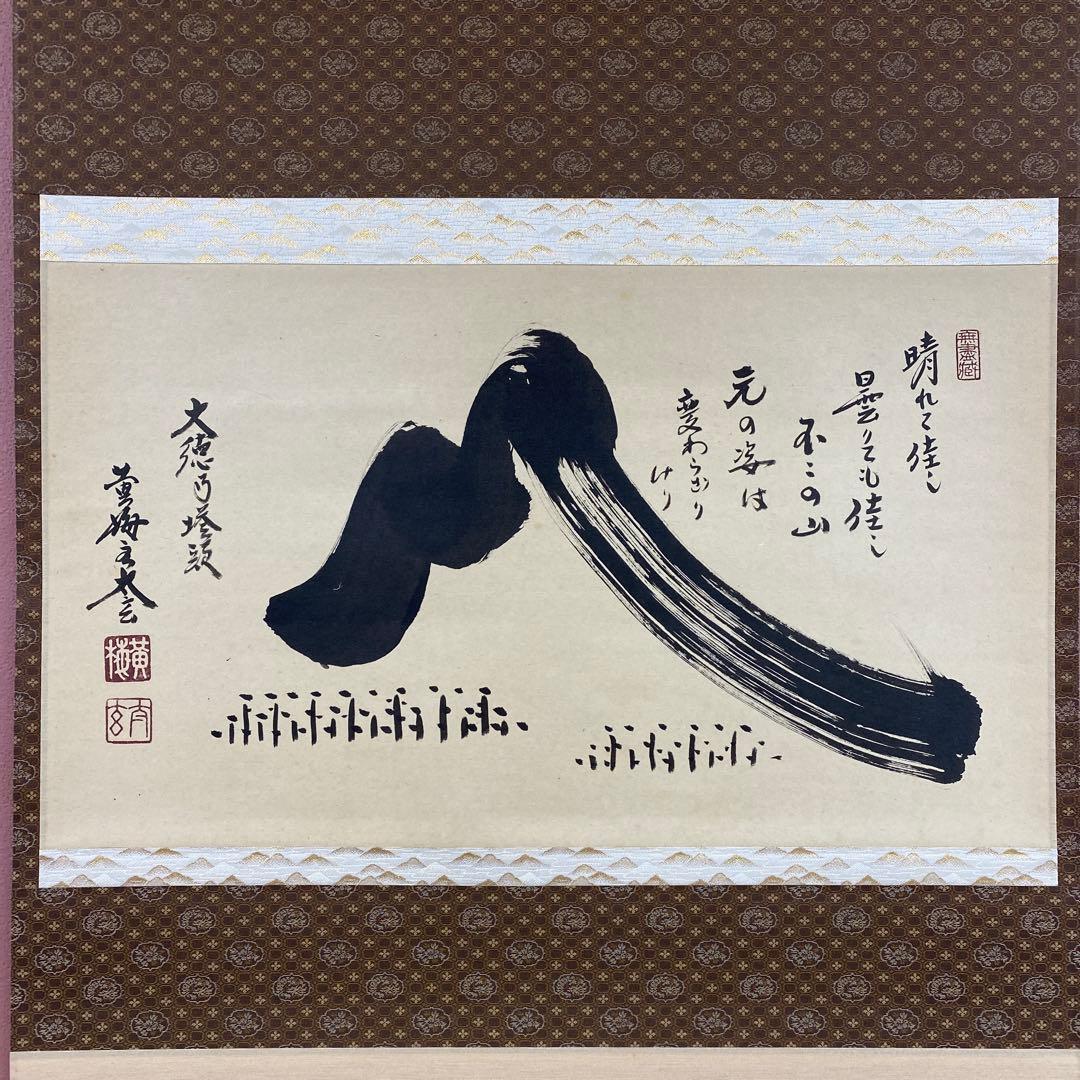 無盡蔵
晴れて佳し
曇りても佳し
不二の山
元の姿は
変わらざり
けり
大徳寺塔頭
黄梅主太玄
黄梅
太玄